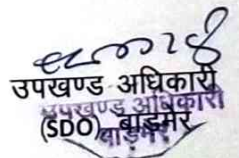 उपखण्ड अधिकारी
उपखण्ड अधिकारी
(SDO) बाड़मेर
बाड़मेर